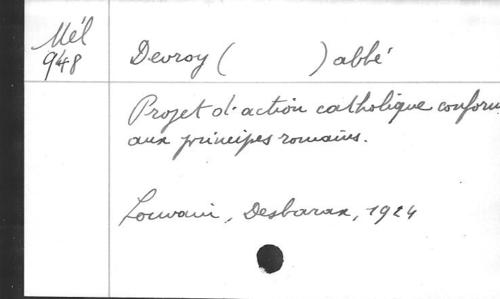 Mél
948
Devroy ( ) abbé
Projet d'action catholique conform
aux principes romains.
Louvain, Desbarax, 1924